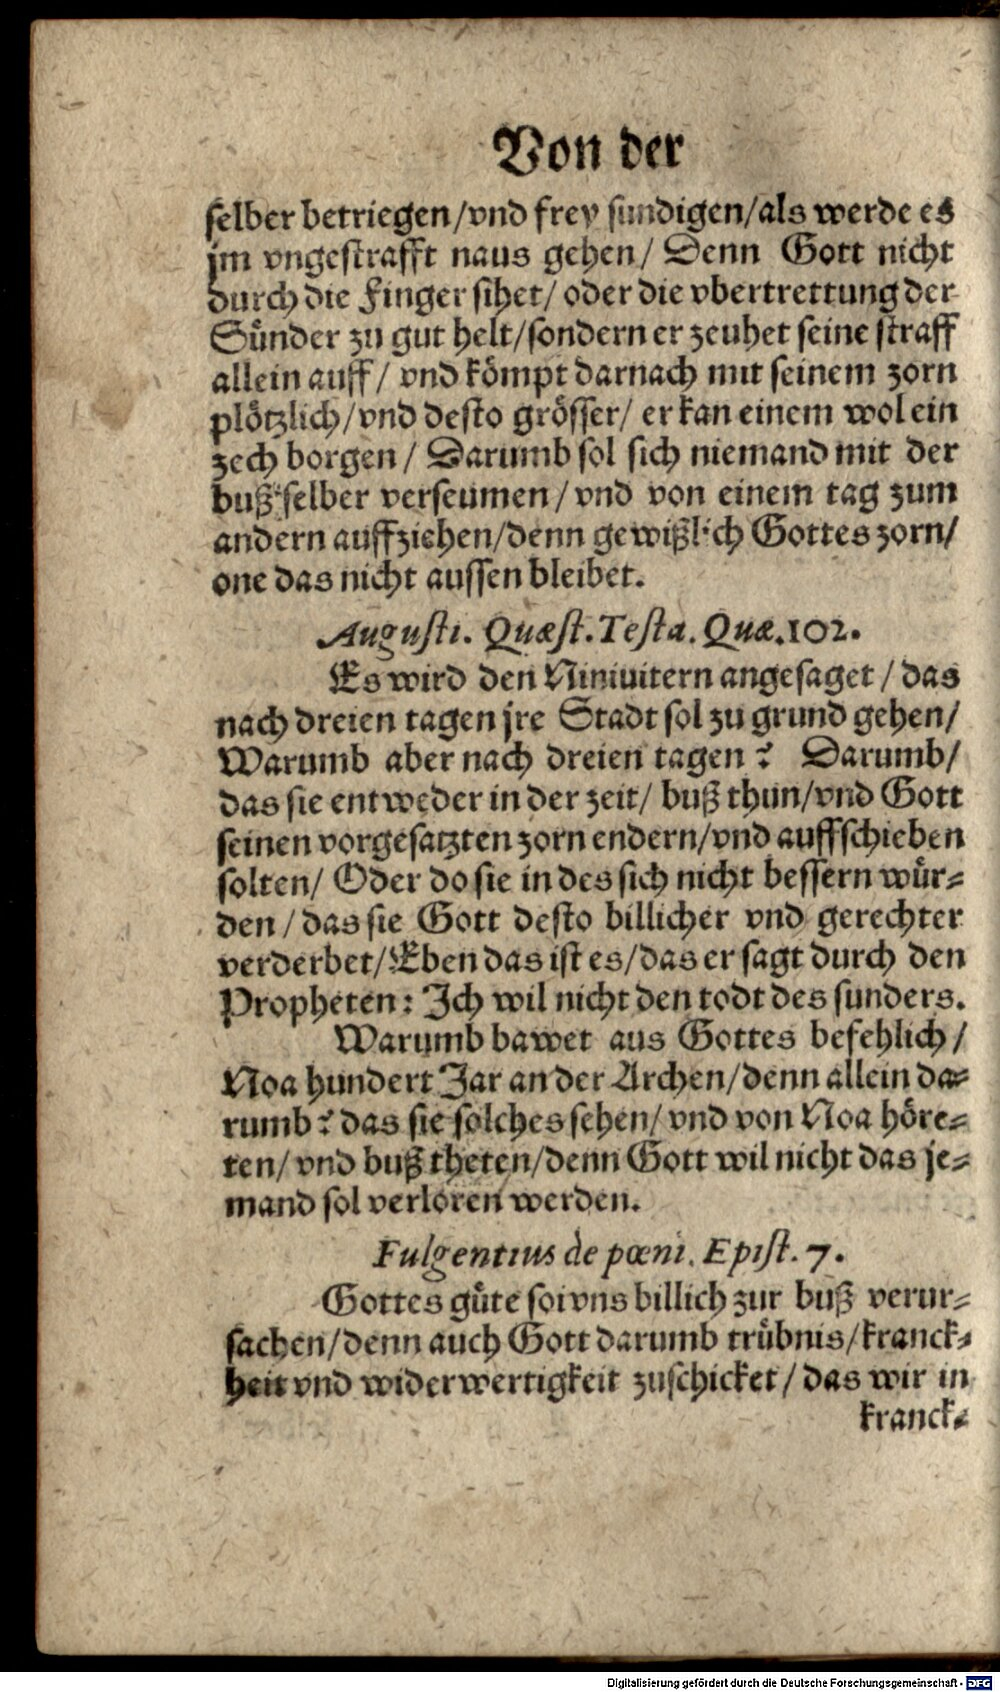 Von der
selber betriegen/vnd frey sundigen/als werde es
jm vngestrafft naus gehen/ Denn Gott nicht
durch die Finger sihet/ oder die vbertrettung der
Sünder zu gut helt/sondern er zeuhet seine straff
allein auff/ vnd kömpt darnach mit seinem zorn
plötzlich/vnd desto grösser/ er kan einem wol ein
zech borgen/ Darumb sol sich niemand mit der
buß selber verseumen/vnd von einem tag zum
andern auffziehen/denn gewißlich Gottes zorn/
one das nicht aussen bleibet.
Augusti. Quæst. Testa. Quæ. 102.
Es wird den Niniuitern angesaget/das
nach dreien tagen jre Stadt sol zu grund gehen/
Warumb aber nach dreien tagen? Darumb/
das sie entweder in der zeit/ buß thun/vnd Gott
seinen vorgesatzten zorn endern/vnd auffschieben
solten/ Oder do sie in des sich nicht bessern wür-
den/das sie Gott desto billicher vnd gerechter
verderbet/Eben das ist es/das er sagt durch den
Propheten: Ich wil nicht den todt des sunders.
Warumb bawet aus Gottes befehlich/
Noa hundert Jar an der Archen/denn allein da-
rumb? das sie solches sehen/vnd von Noa höre-
ten/vnd buß theten/denn Gott wil nicht das je-
mand sol verloren werden.
Fulgentius de pœni. Epist. 7.
Gottes güte sol vns billich zur buß verur-
sachen/denn auch Gott darumb trübnis/kranck-
heit vnd widerwertigkeit zuschicket/das wir in
kranck-
Digitalisierung gefördert durch die Deutsche Forschungsgemeinschaft - DFG